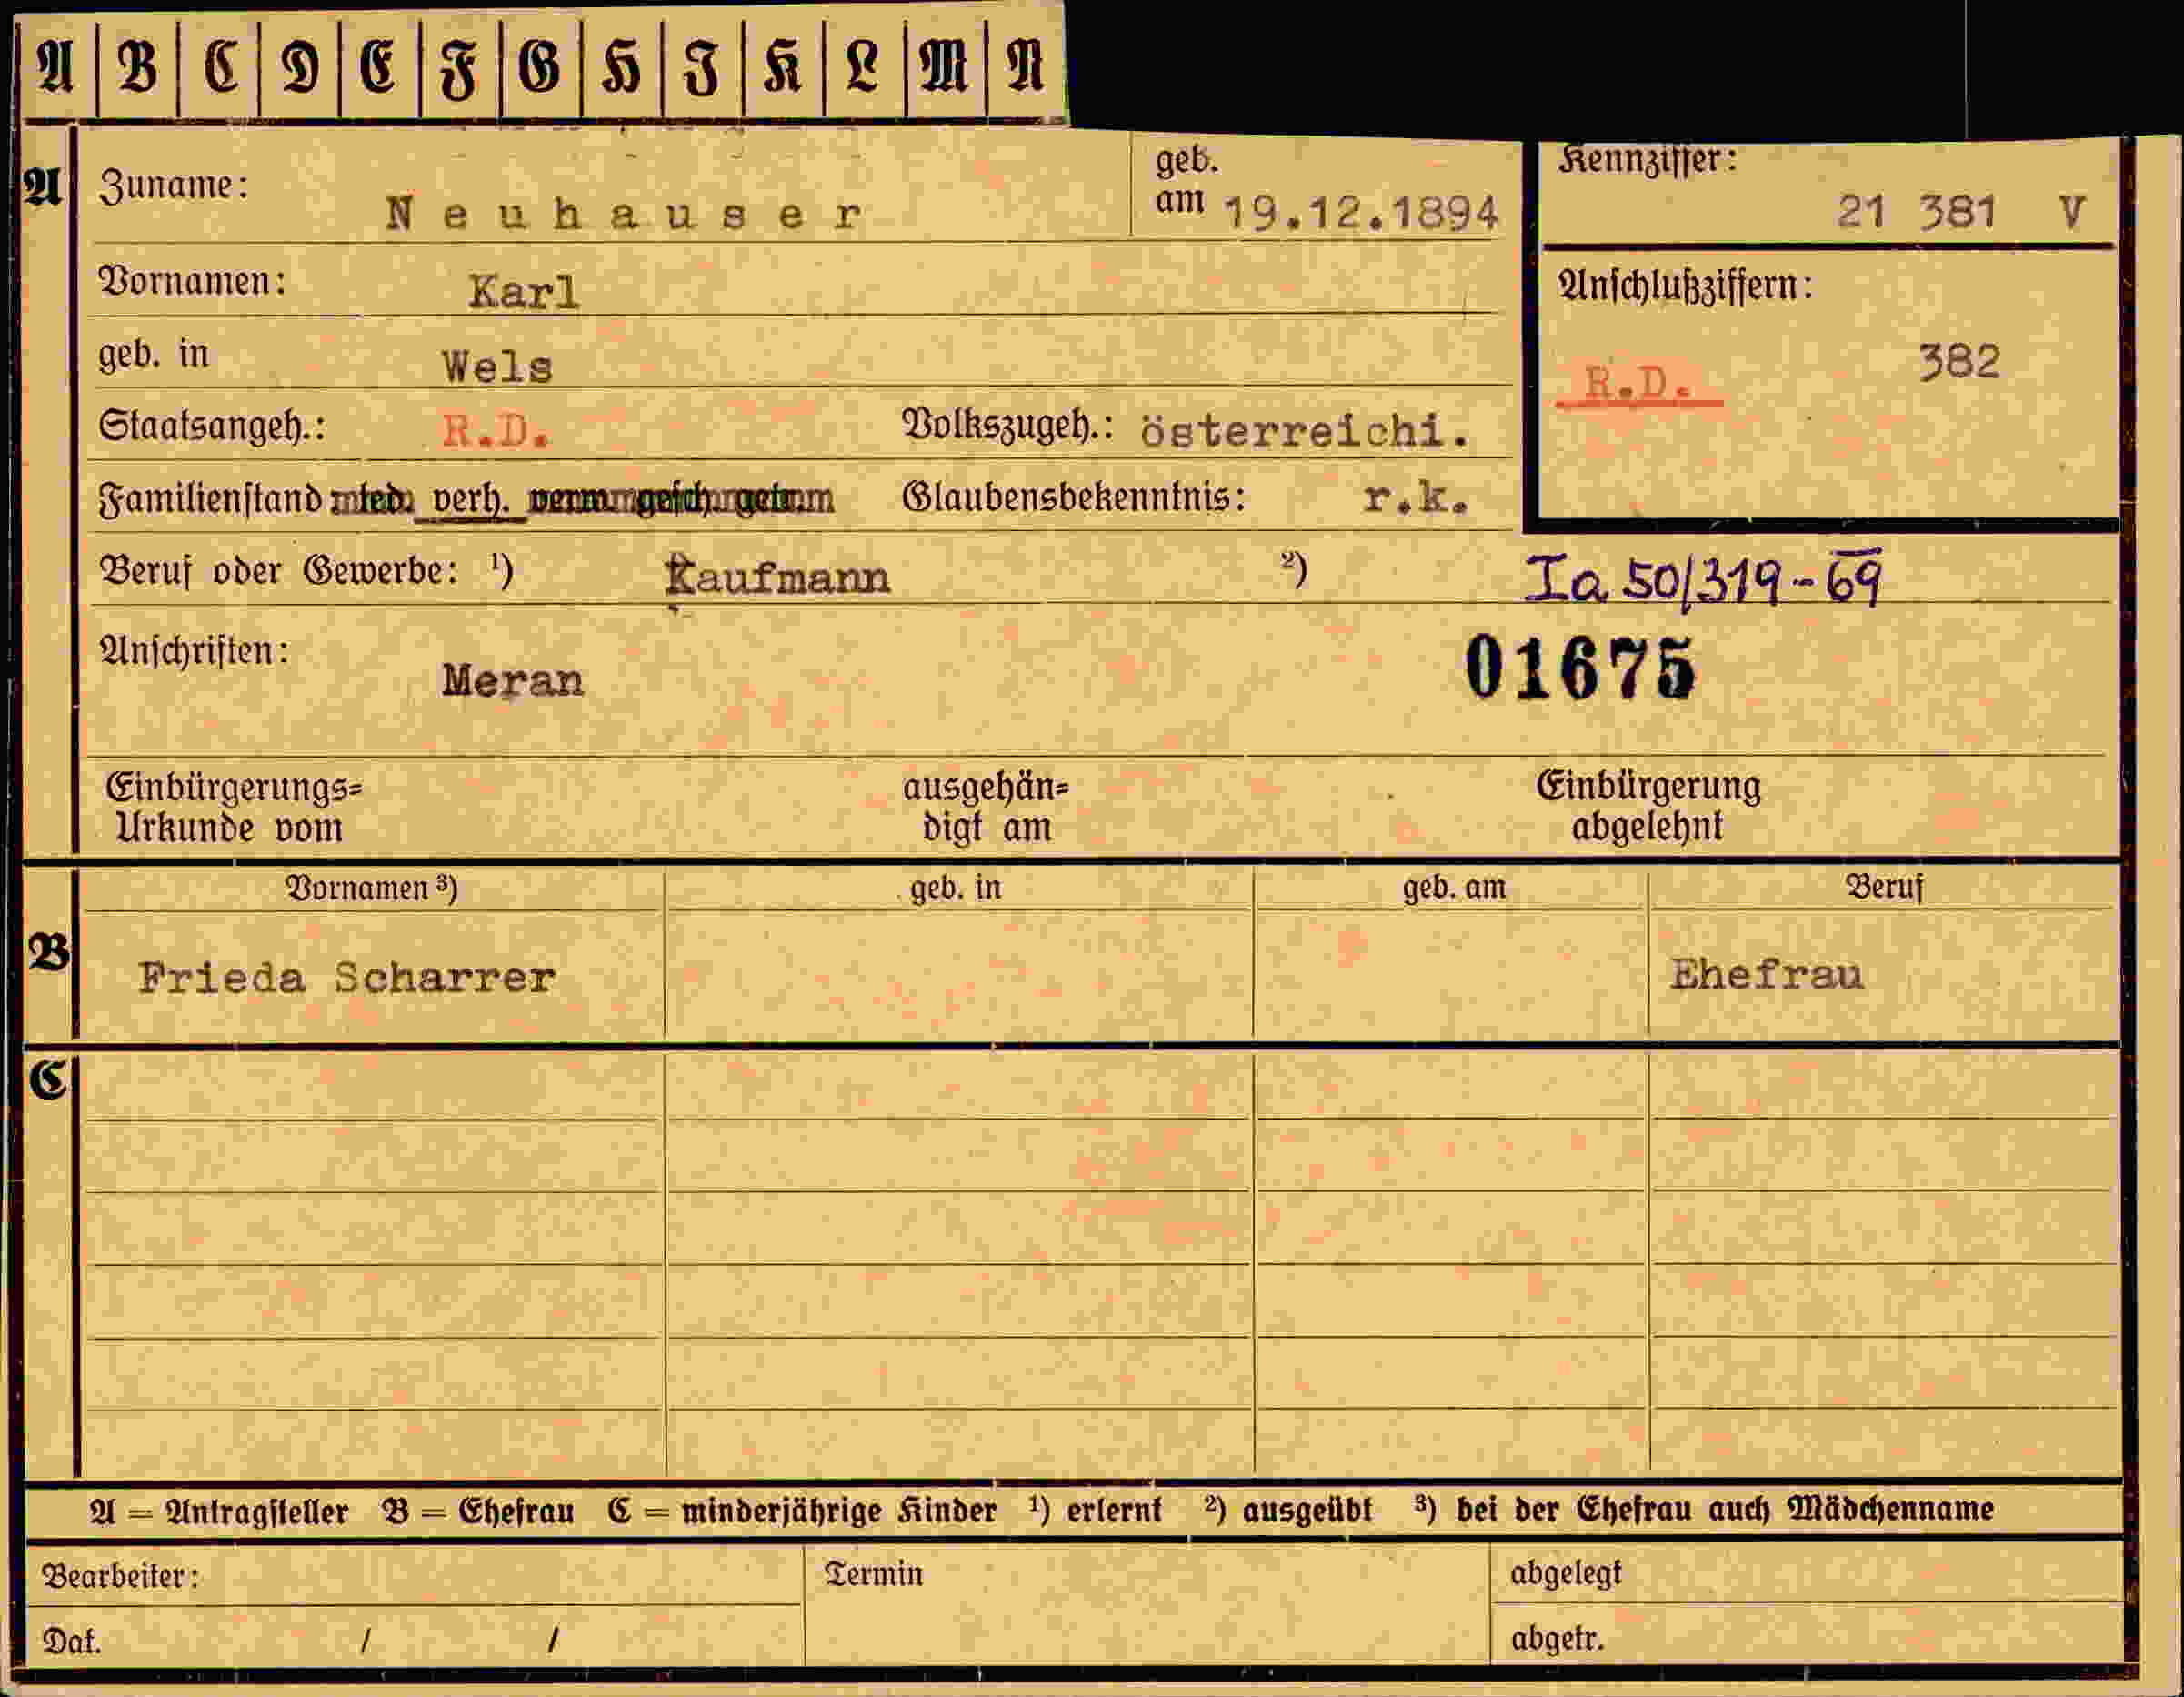 A B C D E F G H I K L M N
A Zuname: Neuhauser geb. am 19.12.1894 Kennziffer: 21 381 V
Vornamen: Karl Anschlußziffern:
geb. in Wels R.D. 382
Staatsangeh.: R.D. Volkszugeh.: österreichi.
Familienstand led. verh. verw. gesch. getr. Glaubensbekenntnis: r.k.
Beruf oder Gewerbe: ¹) Kaufmann ²) Ia 50/319-69
Anschriften: Meran 01675
Einbürgerungs= ausgehän= Einbürgerung
Urkunde vom digt am abgelehnt
Vornamen ³) geb. in geb. am Beruf
B Frieda Scharrer Ehefrau
C
A = Antragsteller B = Ehefrau C = minderjährige Kinder ¹) erlernt ²) ausgeübt ³) bei der Ehefrau auch Mädchenname
Bearbeiter: Termin abgelegt
Dat. / / abgetr.